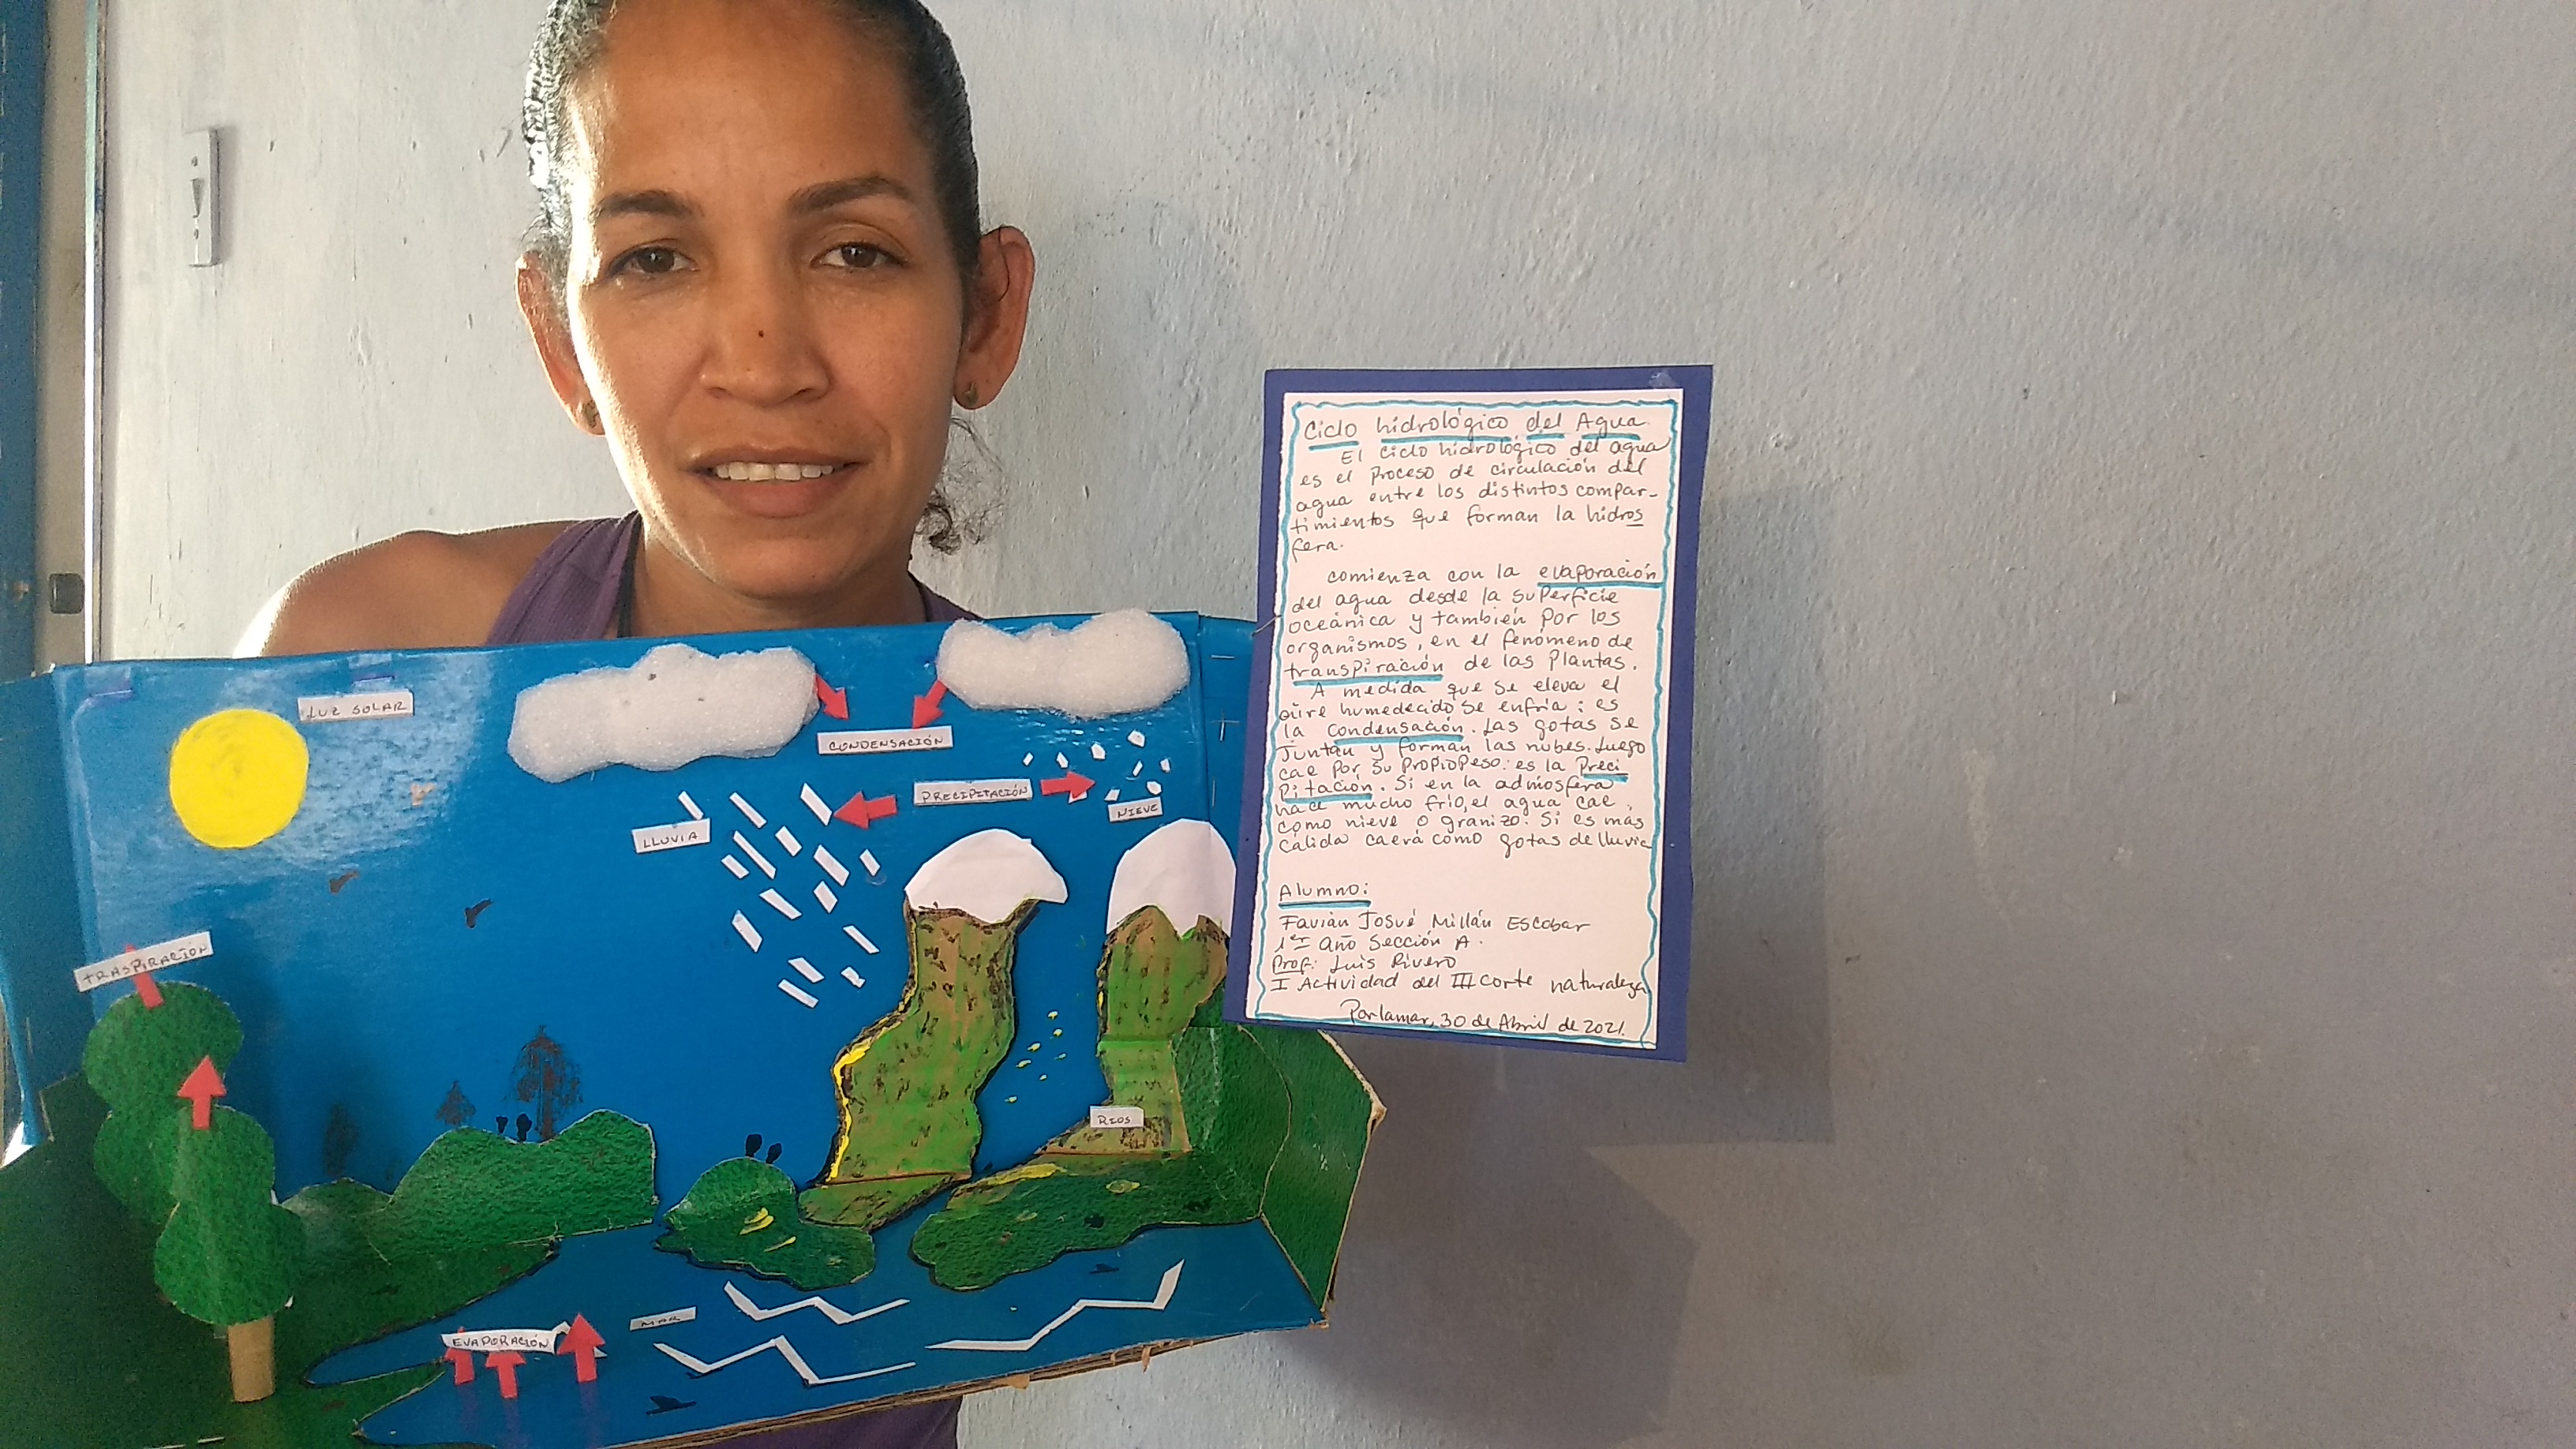 LUZ SOLAR
CONDENSACIÓN
PRECIPITACIÓN
NIEVE
LLUVIA
TRASPIRACIÓN
RIOS
MAR
EVAPORACIÓN
Ciclo hidrológico del Agua.
El ciclo hidrológico del agua
es el proceso de circulación del
agua entre los distintos compar-
timientos que forman la hidros
fera.
comienza con la evaporación
del agua desde la superficie
oceánica y también por los
organismos, en el fenómeno de
transpiración de las plantas.
A medida que se eleva el
aire humedecido se enfría: es
la condensación. Las gotas se
juntan y forman las nubes. Luego
cae por su propio peso: es la Preci
pitación. Si en la admósfera
hace mucho frío, el agua cae
como nieve o granizo. Si es más
cálida caerá como gotas de lluvia
Alumno:
Favián Josué Millán Escobar
1er año Sección A.
Prof: Luis Rivero
I Actividad del III corte naturaleza
Porlamar, 30 de Abril de 2021.